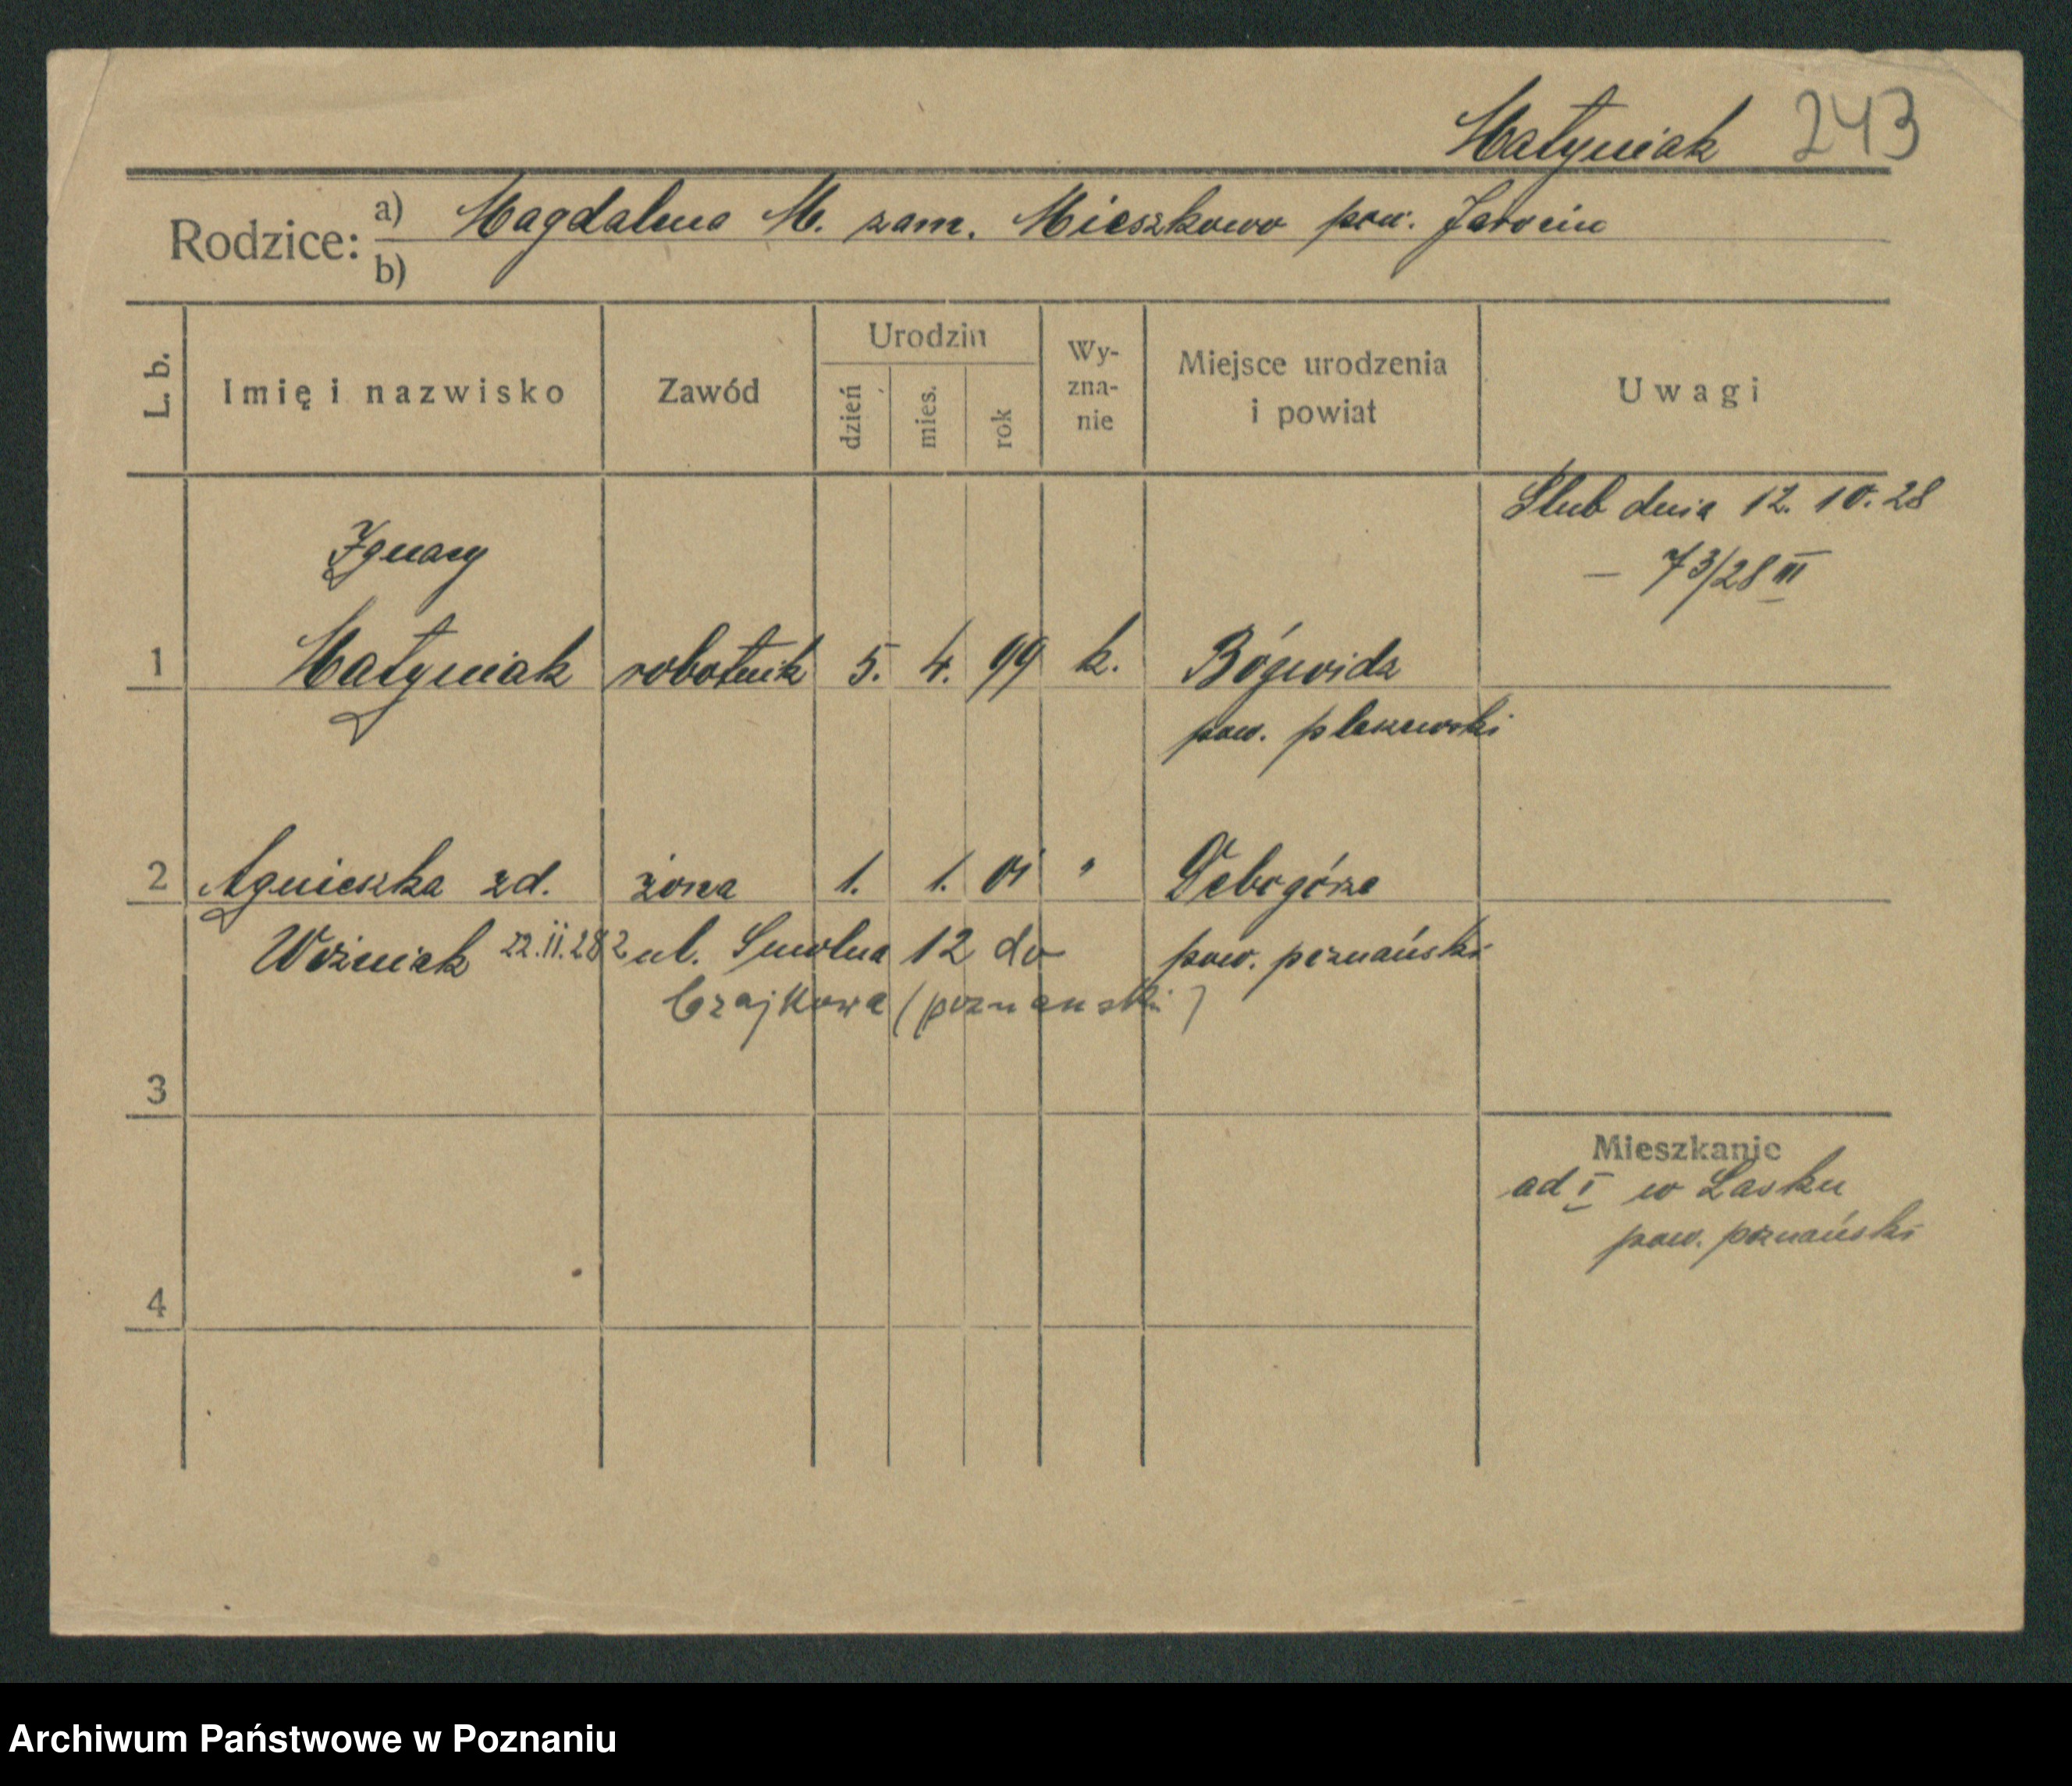 Matyniak 243
Rodzice: a) Magdalena M. zam. Mieszkowo pow. Jarocin
b)
L. b. Imię i nazwisko Zawód Urodzin dzień mies. rok Wy-zna-nie Miejsce urodzenia i powiat Uwagi
Ślub dnia 12. 10. 28
— 73/28 III
Ignacy
1 Matyniak robotnik 5. 4. 99 k. Bógwidz
pow. pleszewski
2 Agnieszka zd. żona 1. 1. 01 " Dębogóra
Woźniak 22.11.28 z ul. Smolna 12 do pow. poznański
Czajkowa (poznanski)
3
Mieszkanie
ad I w Lasku
pow. poznański
4
Archiwum Państwowe w Poznaniu